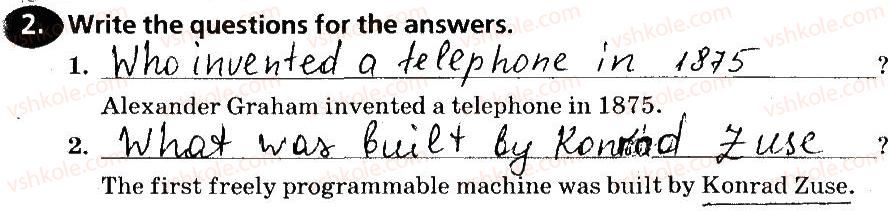 2. Write the questions for the answers.
1. Who invented a telephone in 1875 ?
Alexander Graham invented a telephone in 1875.
2. What was built by Konrad Zuse ?
The first freely programmable machine was built by Konrad Zuse.